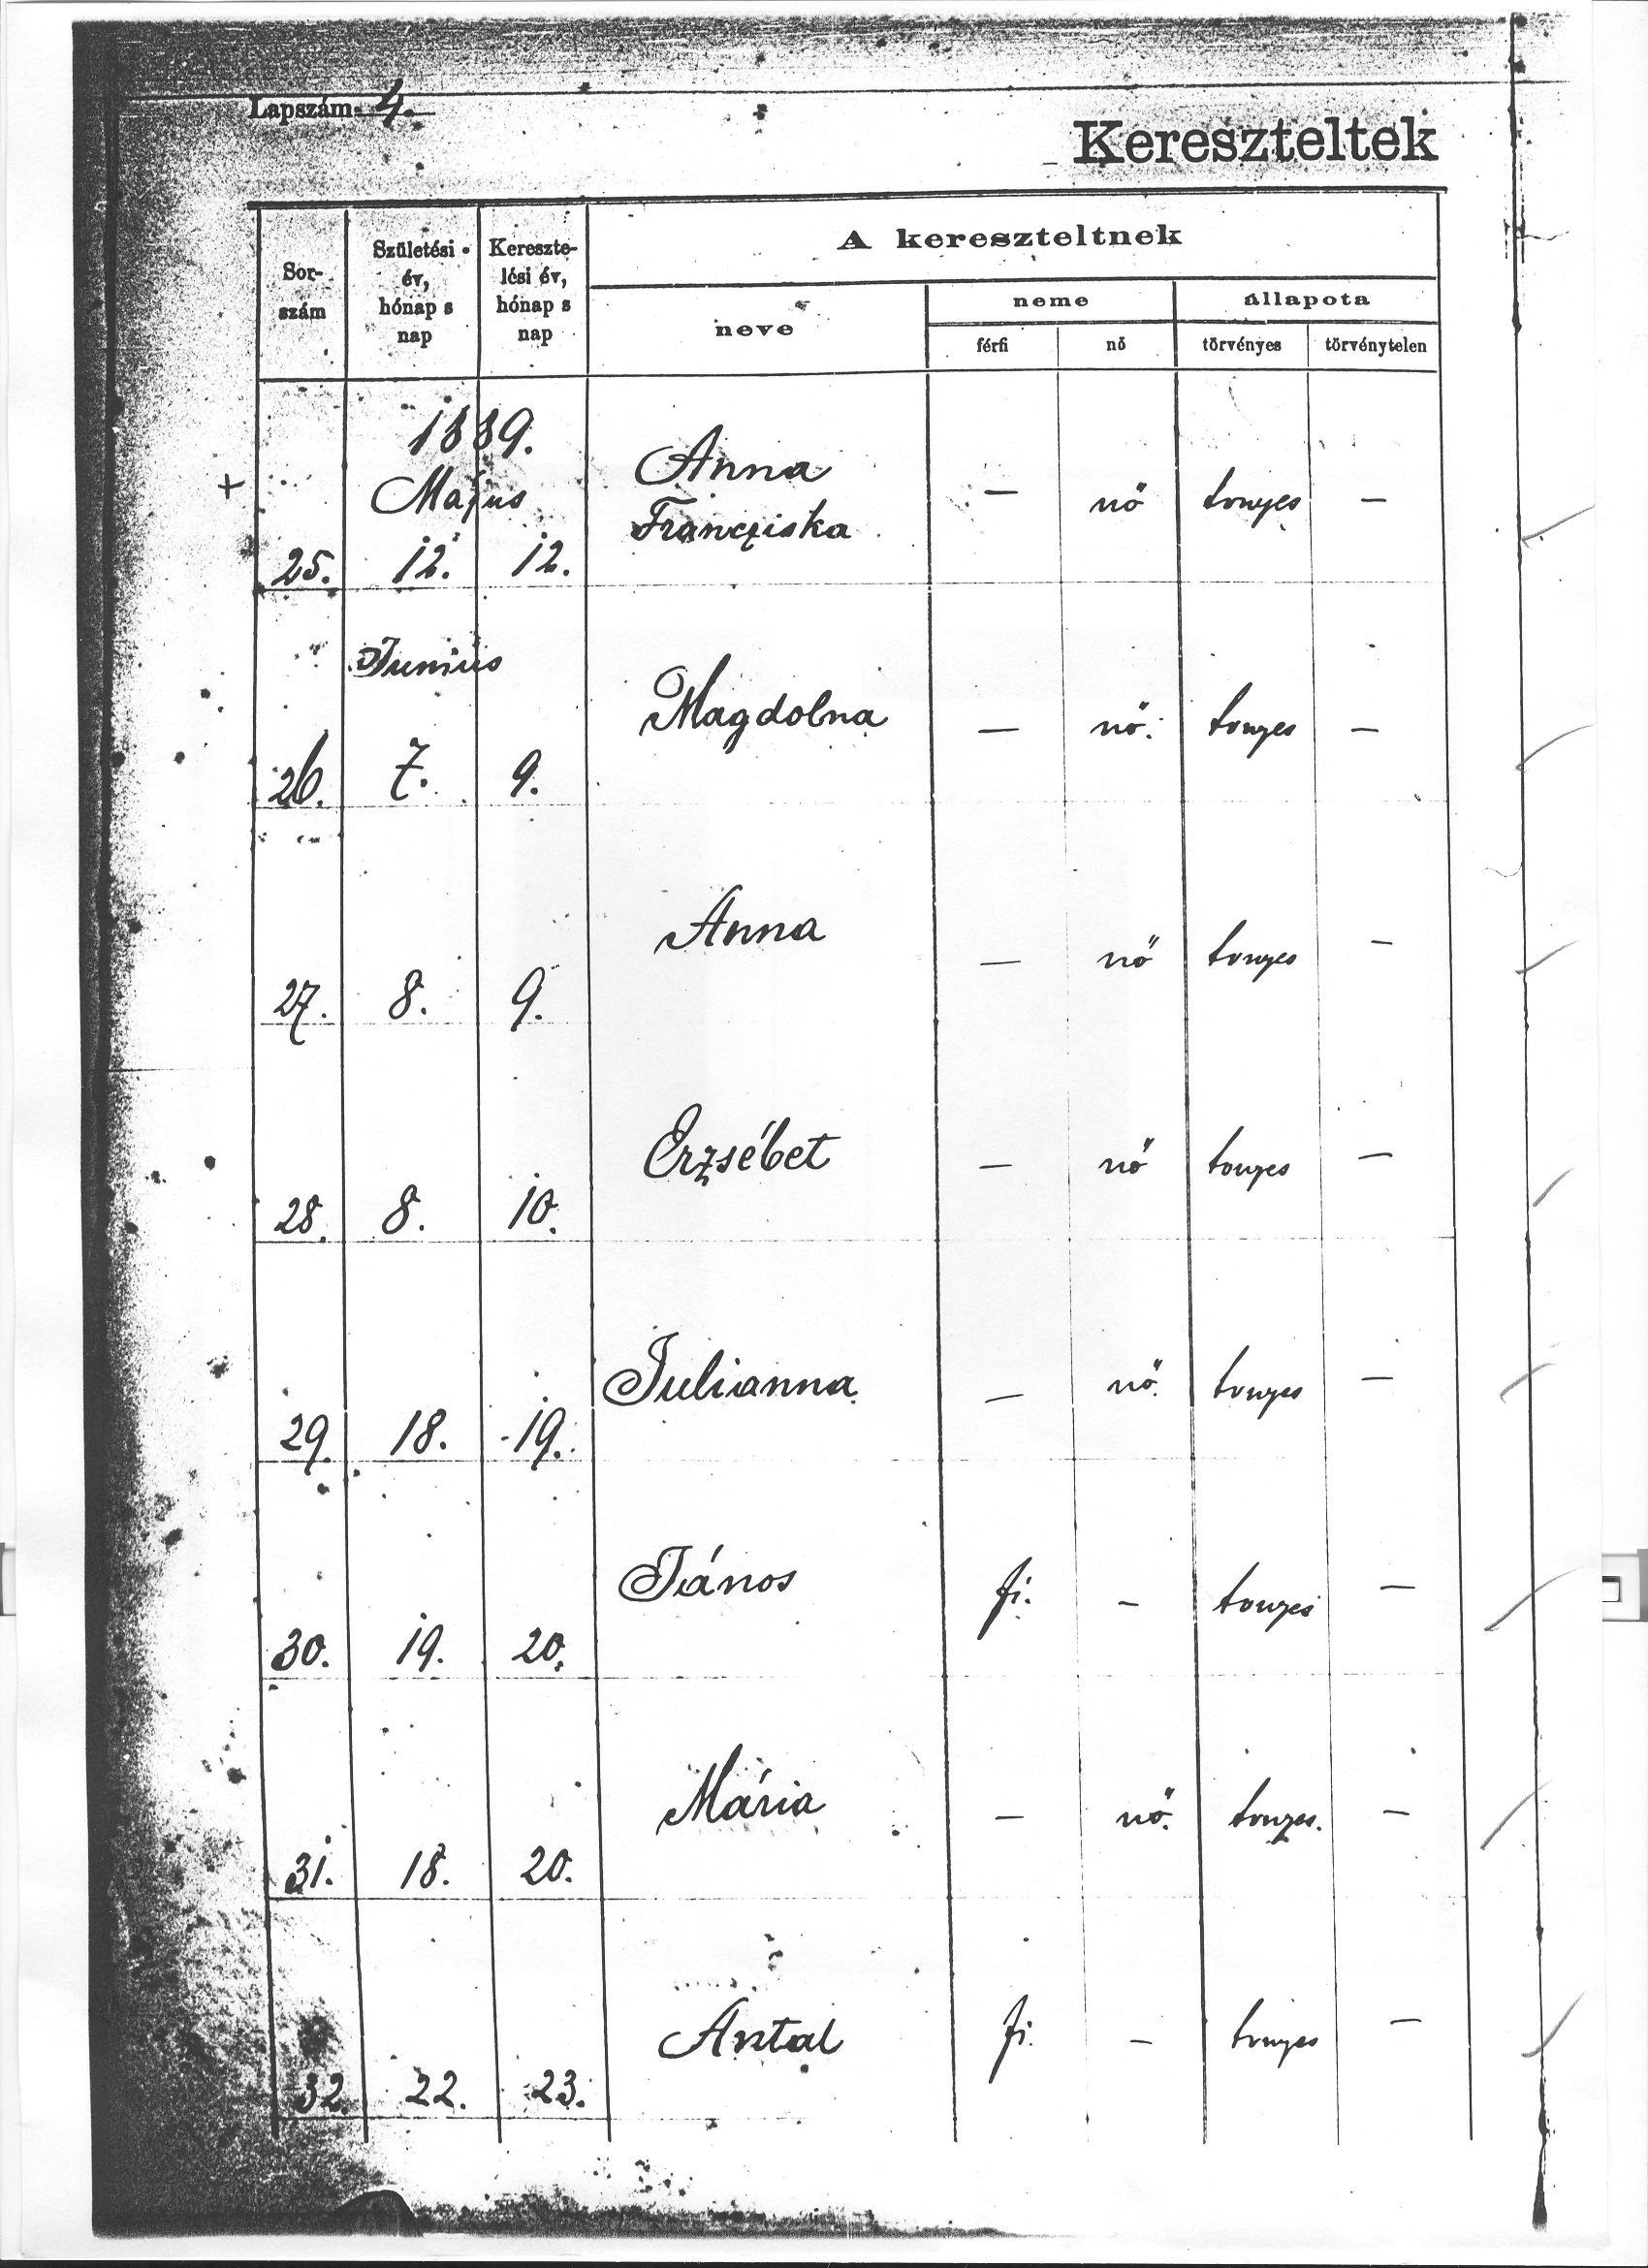 Lapszám 4.
Kereszteltek
Sor-
szám
Születési
év,
hónap s
nap
Kereszte-
lési év,
hónap s
nap
A kereszteltnek
neve
neme
állapota
férfi
nő
törvényes
törvénytelen
1889.
Május
25. 12. 12.
Anna
Francziska
— nő tvnyes —
Junius
26. 7. 9. Magdolna — nő. tvnyes —
27. 8. 9. Anna — nő tvnyes —
28. 8. 10. Erzsébet — nő tvnyes —
29. 18. 19. Julianna — nő. tvnyes —
30. 19. 20. János fi. — tvnyes —
31. 18. 20. Mária — nő. tvnyes. —
32. 22. 23. Antal fi. — tvnyes —